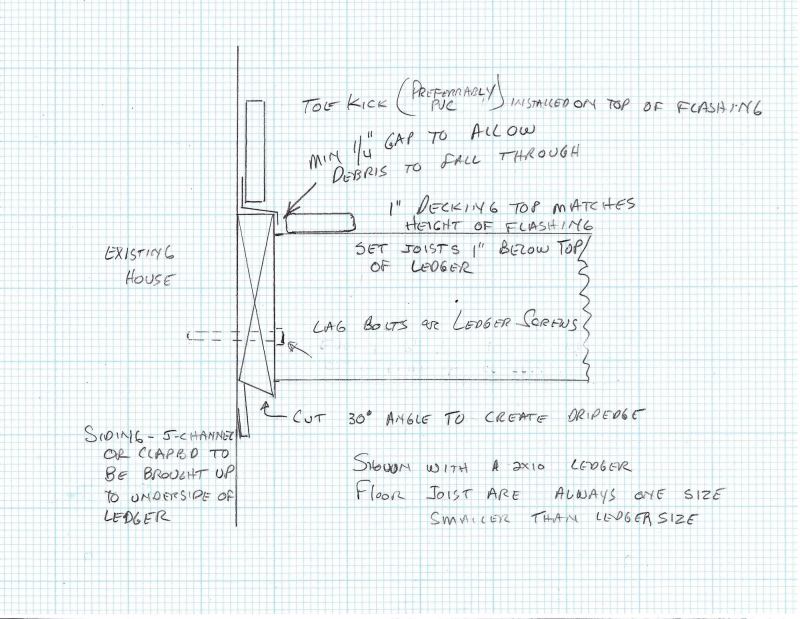 TOE KICK (PREFERRABLY PVC) INSTALLED ON TOP OF FLASHING
MIN 1/4" GAP TO ALLOW
DEBRIS TO FALL THROUGH
1" DECKING TOP MATCHES
HEIGHT OF FLASHING
SET JOISTS 1" BELOW TOP
OF LEDGER
EXISTING
HOUSE
LAG BOLTS OR LEDGER SCREWS
CUT 30° ANGLE TO CREATE DRIPEDGE
SIDING - J-CHANNEL
OR CLAPBD TO
BE BROUGHT UP
TO UNDERSIDE OF
LEDGER
SHOWN WITH A 2X10 LEDGER
FLOOR JOIST ARE ALWAYS ONE SIZE
SMALLER THAN LEDGER SIZE